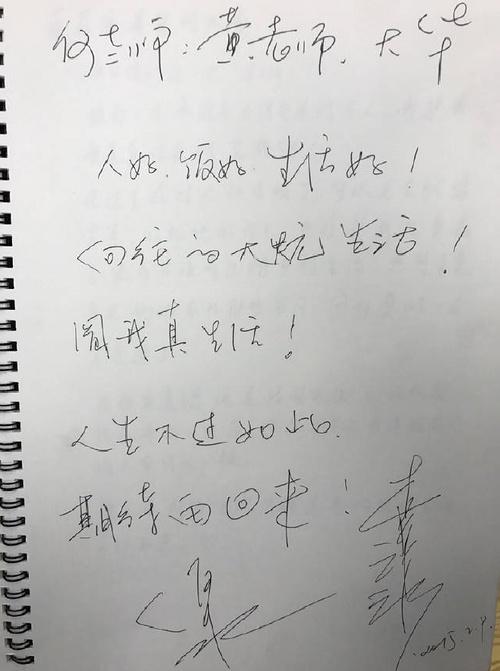 何老师:黄老师、大华
人好.饭好.生活好!
向往的大炕生活!
我真生活!
人生不过如此.
期待再回来!